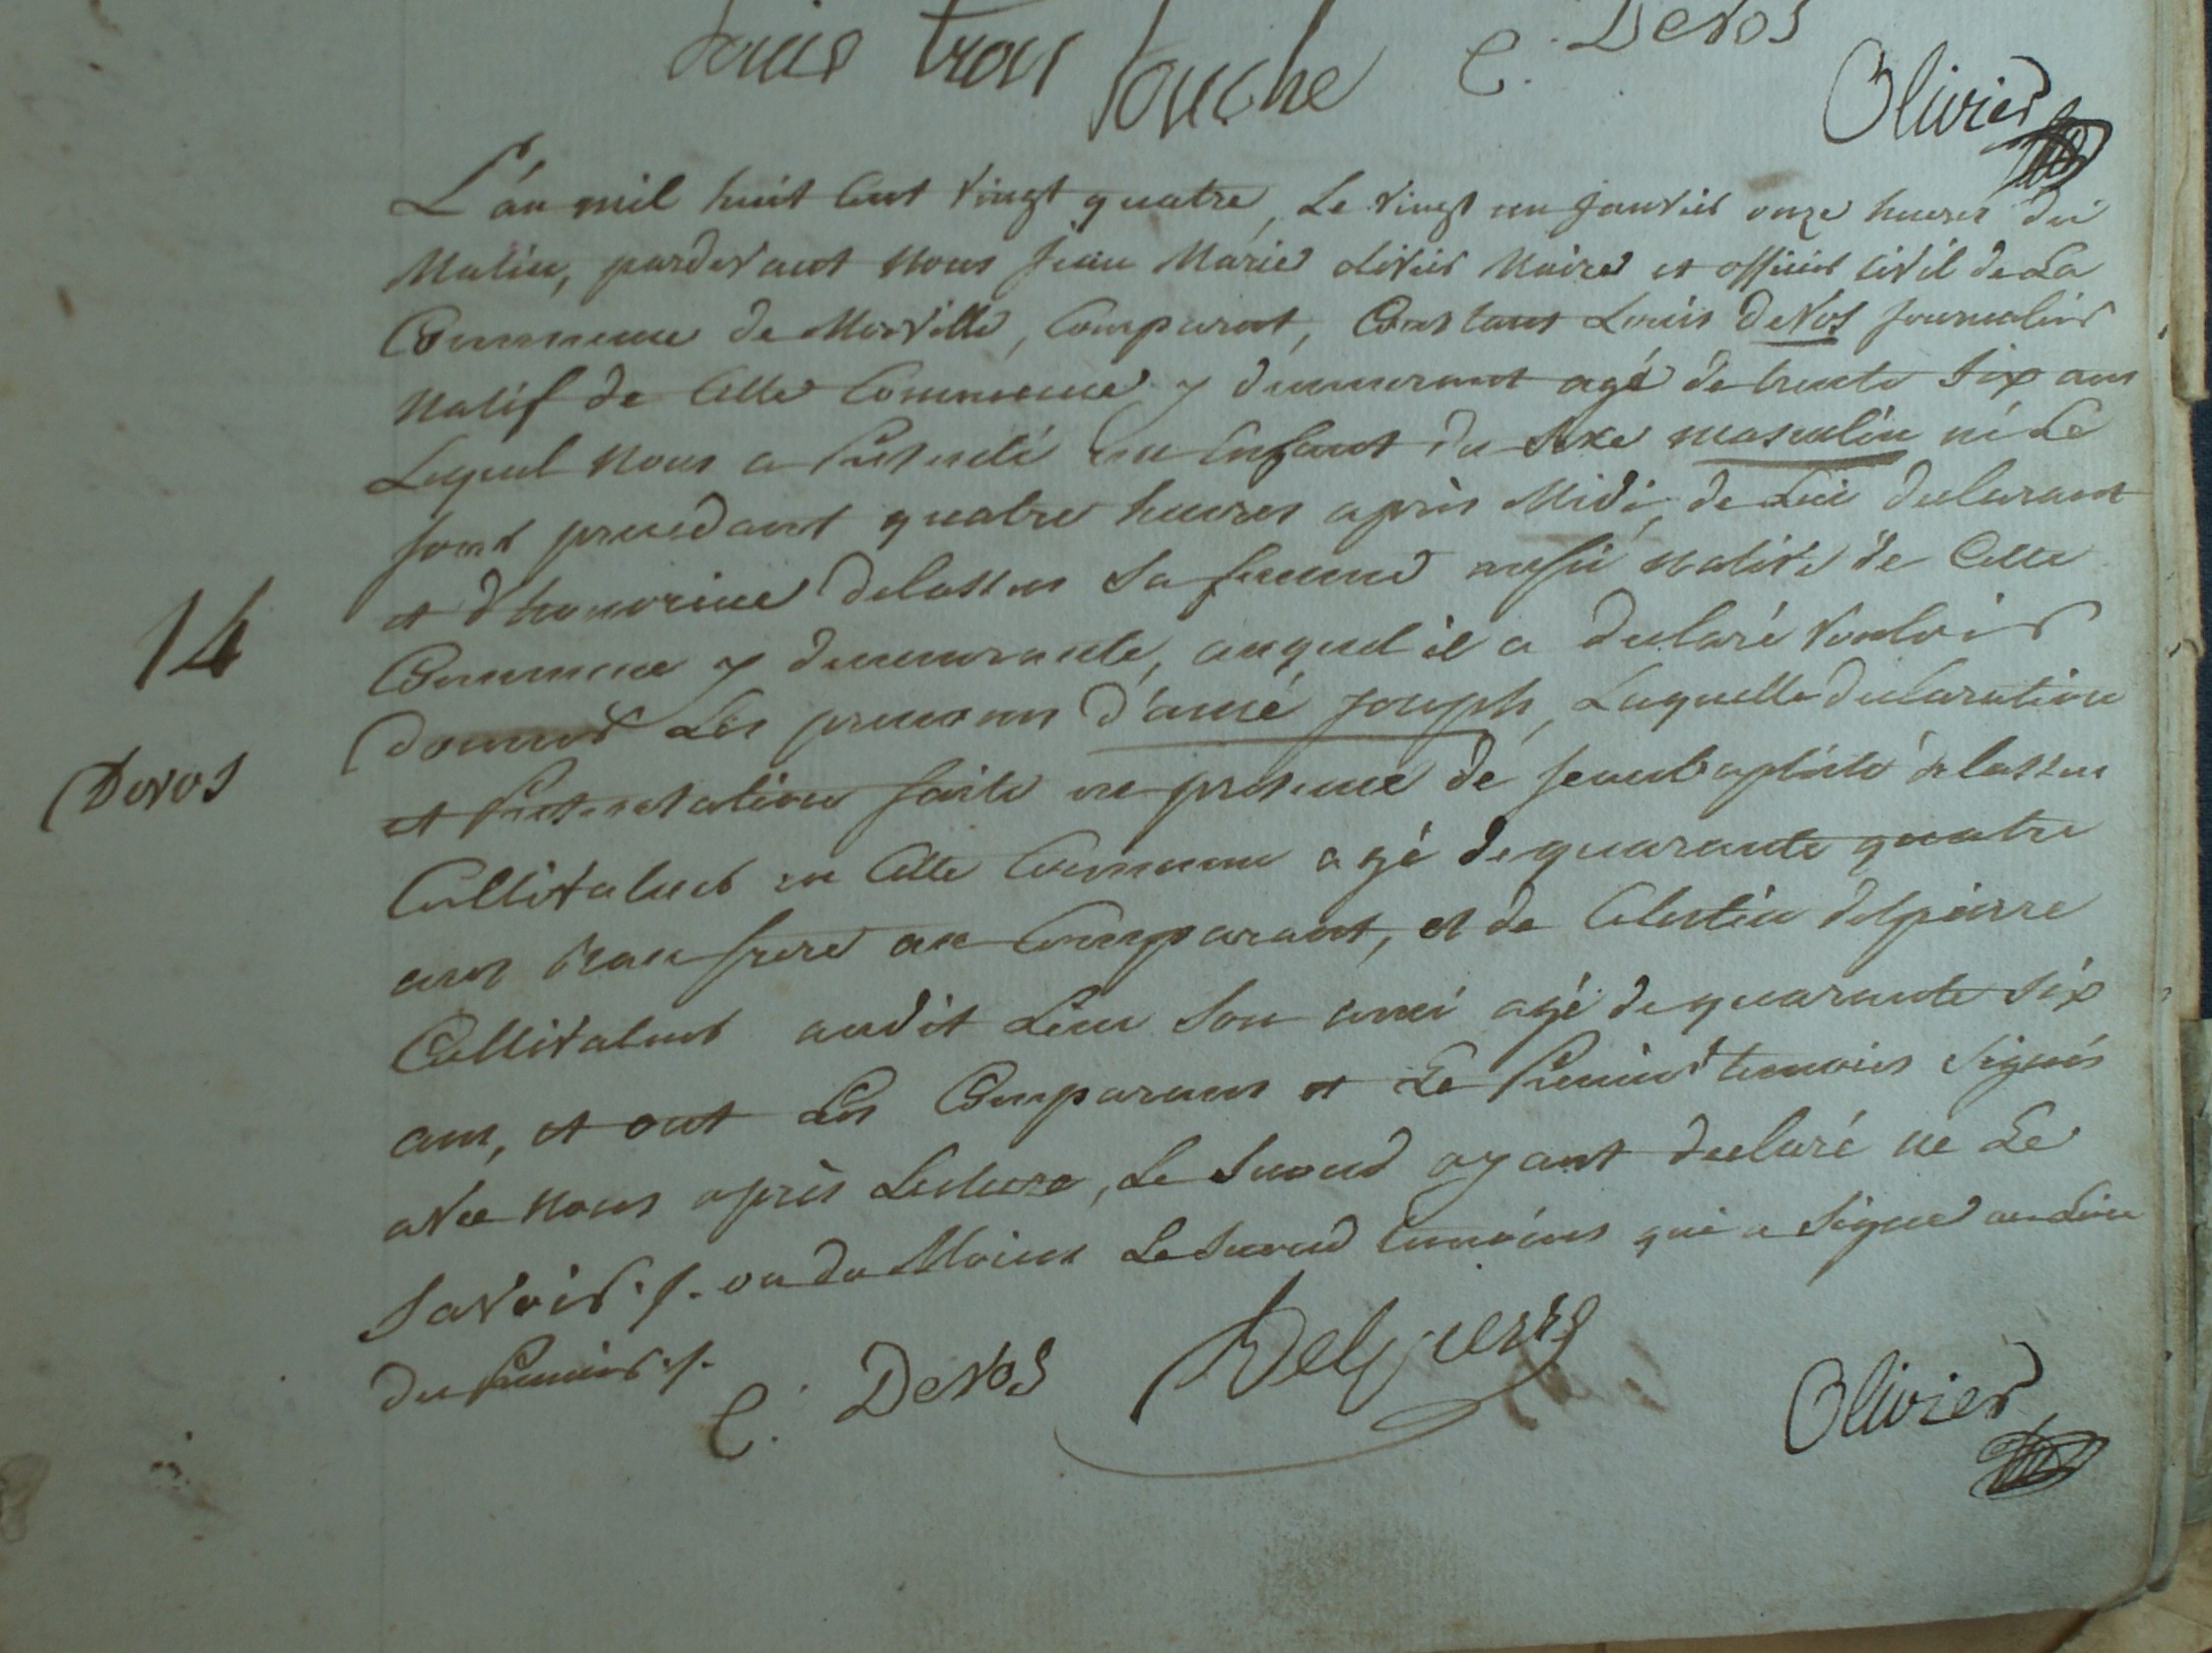 Louis trou Louche C. Devos
Olivier
L'an mil huit Cent vingt quatre, Le vingt un Janvier onze heures du
Matin, pardevant Nous Jean Marie Olivier Maire et officier Civil de La
Commune de Morville, Comparat, Constant Louis DeVos Journalier
Natif de Cette Commune y demeurant agé de trente Six ans
Lequel Nous a Présenté un Enfant du Sexe masculin né Le
jour precedant quatre heures après Midi, de Lui declarant
et d'honorine delassus Sa femme aussi Native de Cette
Commune y demeurante, auquel il a declaré Vouloir
donner Les prenoms d'aimé Joseph, Laquelle declaration
et Présentation faite en présence de Jeanbaptiste delassus
Cultivateur en Cette Commune agé de quarante quatre
ans beaufrere au Comparant, et de Célestin delpierre
Cultivateur audit Lieu Son ami agé de quarante Six
ans, et ont Les Comparans et Le Premier temoins Signés
avec Nous après Lecture, Le Second ayant declaré ne Le
Savoir ./. ou du Moins Le Second temoins qui a Signé au Lieu
du Premier ./.
C. DeVos Delpierre
Olivier
14
Devos